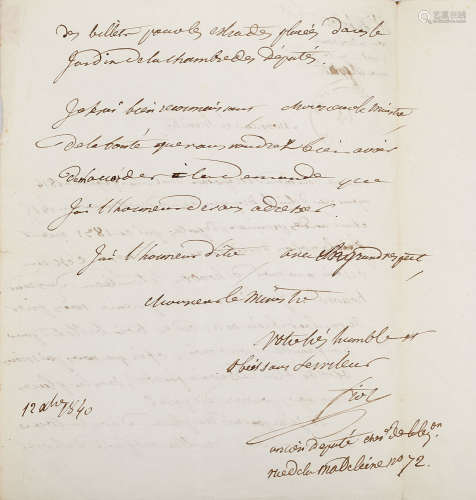 des billets pour les estrades placées dans le
Jardin de la chambre des députés.
Je serai bien reconnaissant Monsieur le Ministre
de la bonté que vous voudrez bien avoir
d'accorder à la demande que
J'ai l'honneur de vous adresser
J'ai l'honneur d'être avec le plus grand respect,
Monsieur le Ministre
Votre très humble et
obéissant serviteur
12 xbre 1840
ancien Député
rue de la Madeleine no 72.